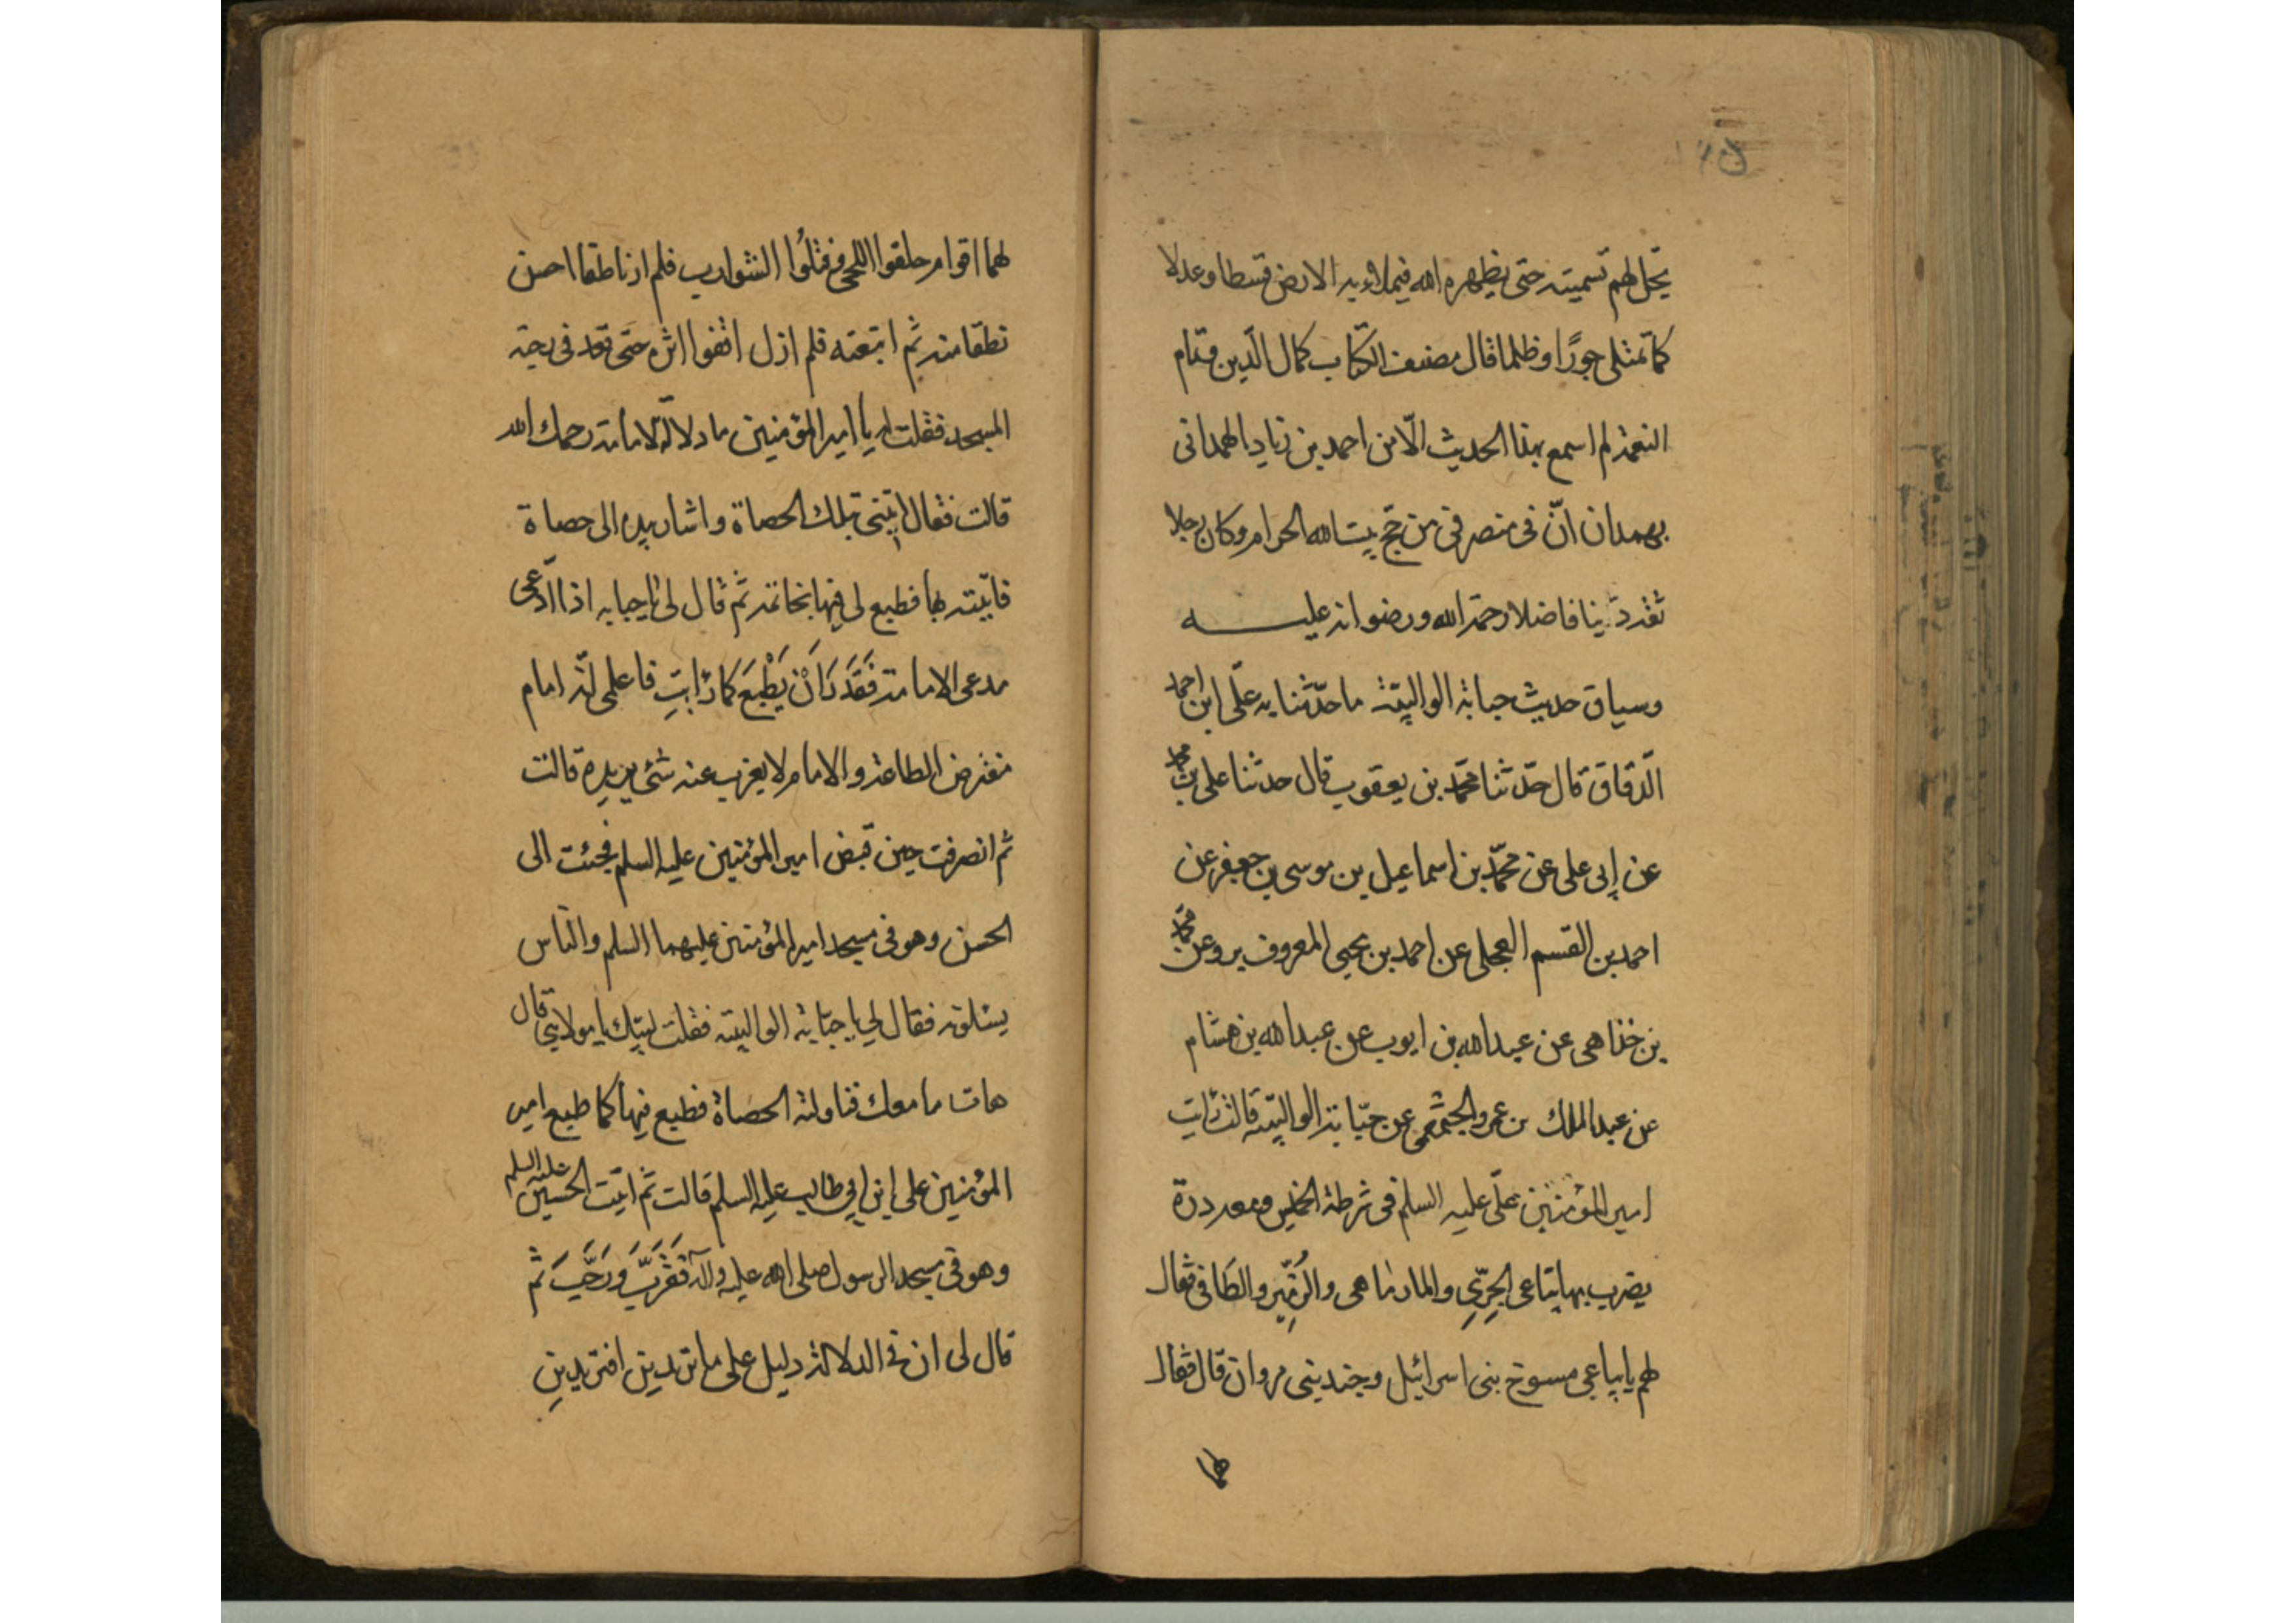 يحل لهم تسميته حتى يظهره الله فيملاء به الارض قسطا وعدلا
كما تمتلى جورًا وظلما قال مصنف الكتاب كمال الدّين وتمام
النعمة لم اسمع بهذا الحديث الّا من احمد بن زياد الهمدانى
بهمدان انّ فى منصرفى من حج بيت الله الحرام وكان رجلا
ثقه ديّنا فاضلا رحمة الله ورضوانه عليه
وسياق حديث حبابة الوالبيّة ما حدّثنا به علّى ابن احمد
الدّقاق قال حدّثنا محمّد بن يعقوب قال حدثنا على بن محمد
عن إبى على عن محمّد بن اسماعيل بن موسى بن جعفر عن
احمد بن القسم العجلى عن احمد بن يحيى المعروف ببرد عن محمد
بن خذاهى عن عبد الله بن ايوب عن عبد الله بن هشام
عن عبد الملك بن عمرو الخثعمى عن حبّابة الوالبيّة قالت رايت
امير المؤمنين علّى عليه السلم فى شرطة الخميس ومعه درة
يضرب بها بياعى الجرّىِ والمارماهى والزمّير والطافى فقال
لهم يا بياعى مسوخ بنى اسرائيل وجند بنى مروان قال فقال
لهما
لهما اقوام حلقوا اللحى وفتلُوا الشوارب فلم ار ناطقا احسن
نطقا منه ثم اتبعته فلم ازل اقفوا اثره حتى قعد فى رحبة
المسجد فقلت له يا امير المؤمنين ما دلالة الامامة رحمك الله
قالت فقال ائتنى بتلك الحصاة واشار بيده الى حصاة
فاتيته بها فطبع لى فيها بخاتمه ثم قال لى يا حبابه اذا ادّعى
مدعى الامامة فَقَدَرَ اَنْ يَطْبَعَ كما رَاَيتِ فاعلمى انّه امام
مفترض الطاعة والامام لا يعزب عنه شئ يريده قالت
ثم انصرفت حين قبض امير المؤمنين عليه السلم فجئت الى
الحسن وهو فى مسجد امير المؤمنين عليهما السلم والناس
يسئلونه فقال لي يا حبّابة الوالبيّة فقلت لبيّك يا مولاى قال
هات ما معك فناولته الحصاة فطبع فيها كما طبع امير
المؤمنين على ابن ابي طالب عليه السلم قالت ثم اتيت الحسين عليه السلم
وهو فى مسجد الرسول صلى الله عليه وآله فَقَرَّبَ وَرَحَّبَ ثم
قال لى ان فى الدلالة دليل على ما تريدين افتريدين